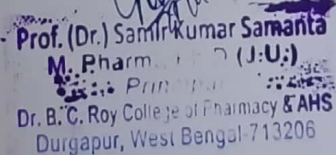 Prof. (Dr.) Samir Kumar Samanta
M. Pharm. D (J.U.)
Principal
Dr. B. C. Roy College of Pharmacy & AHS
Durgapur, West Bengal-713206